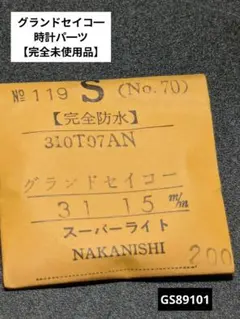 グランドセイコー
時計パーツ
【完全未使用品】
№ 119 S (No.70)
【完全防水】
310T07AN
グランドセイコー
31 15 m/m
スーパーライト
NAKANISHI
200
GS89101